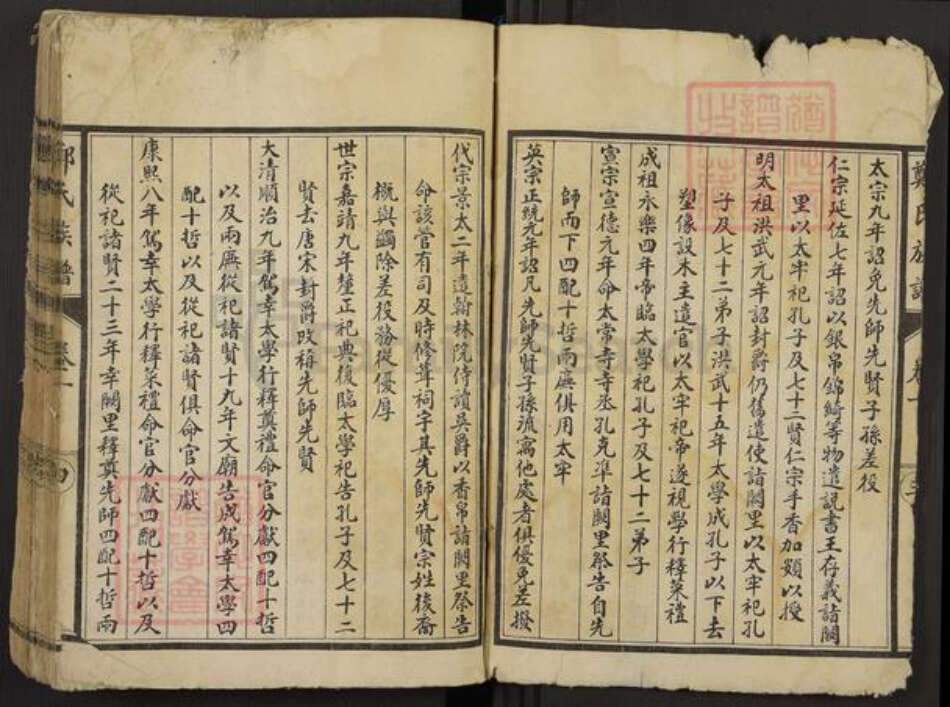 太宗九年詔免先師先賢子孫差役
仁宗延佑七年詔以銀帛錦綺等物遣説書王存義詣闕
里以太牢祀孔子及七十二賢仁宗手香加顙以授
明太祖洪武元年詔封爵仍舊遣使詣闕里以太牢祀孔
子及七十二弟子洪武十五年太學成孔子以下去
塑像設木主遣官以太牢祀帝遂視學行釋菜禮
成祖永樂四年帝臨太學祀孔子及七十二弟子
宣宗宣德元年命太常寺寺丞孔克準詣闕里祭告自先
師而下四配十哲兩廡俱用太牢
英宗正統元年詔凡先師先賢子孫流寓他處者俱優免差撥
代宗景太二年遣翰林院侍讀吳爵以香帛詣闕里祭告
命該管有司及時修葺祠宇其先師先賢宗姓後裔
概與蠲除差役務從優厚
世宗嘉靖九年釐正祀典復臨太學祀告孔子及七十二
賢去唐宋封爵改稱先師先賢
大清順治九年駕幸太學行釋奠禮命官分獻四配十哲
以及兩廡從祀諸賢十九年文廟告成駕幸太學四
配十哲以及從祀諸賢俱命官分獻
康熙八年駕幸太學行釋菜禮命官分獻四配十哲以及
從祀諸賢二十三年幸闕里釋奠先師四配十哲兩
鄭氏族譜
卷一
四